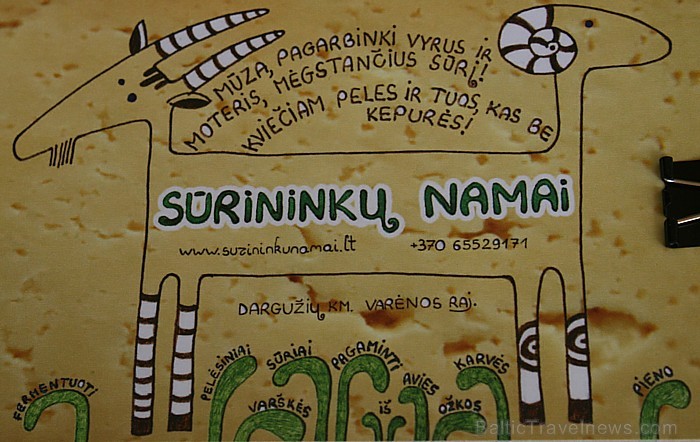 MŪZA, PAGARBINKI VYRUS IR
MOTERIS, MĖGSTANČIUS SŪRĮ!
KVIEČIAM PELES IR TUOS, KAS BE
KEPURĖS!
SŪRININKŲ NAMAI
www.surininkunamai.lt +370 65529171
DARGUŽIŲ KM. VARĖNOS RAJ.
FERMENTUOTI
PELĖSINIAI
SŪRIAI
VARŠKĖS
PAGAMINTI
IŠ
AVIES
OŽKOS
KARVĖS
PIENO
BalticTravelnews.com